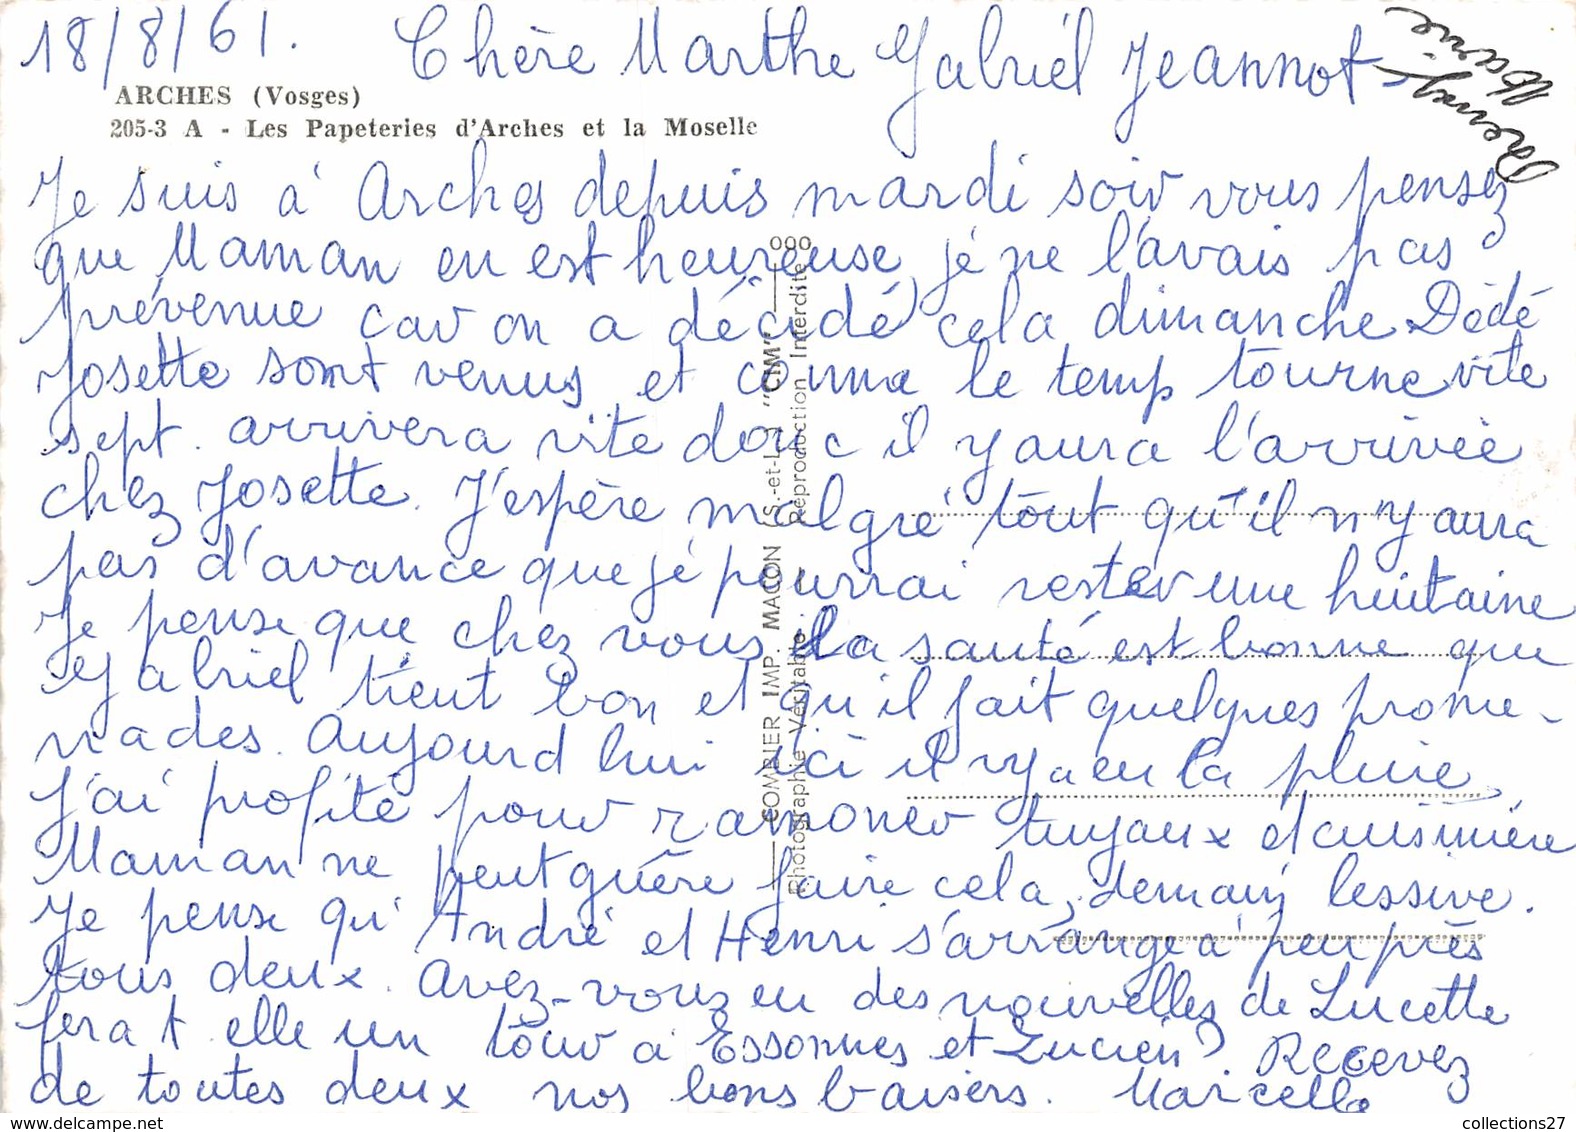 18/8/61. Chère Marthe Gabriel Jeannot -
Remeg
Marie
ARCHES (Vosges)
205-3 A - Les Papeteries d'Arches et la Moselle
Je suis à Arches depuis mardi soir vous pensez
que Maman en est heureuse, je ne l'avais pas
prévenue car on a décidé cela dimanche Dédé
Josette sont venus et comme le temps tourne vite
sept. arrivera vite donc il y aura l'arrivée
chez Josette. J'espère malgré tout qu'il n'y aura
pas d'avance que je pourrai rester une huitaine
Je pense que chez vous la santé est bonne que
Gabriel tient bon et qu'il fait quelques prome-
nades. Aujourd hui ici il y a eu la pluie
J'ai profité pour ramoner tuyaux et cuisinière
Maman ne peut guère faire cela, demain lessive.
Je pense qu' André et Henri s'arrange à peu près
tous deux. Avez-vous eu des nouvelles de Lucette
fera t elle un tour à Essonnes et Lucien? Recevez
de toutes deux nos bons baisers. Marcelle
COMBIER IMP. MACON (S.-et-L.) "CIM"
Photographie Véritable - Reproduction Interdite
collections27